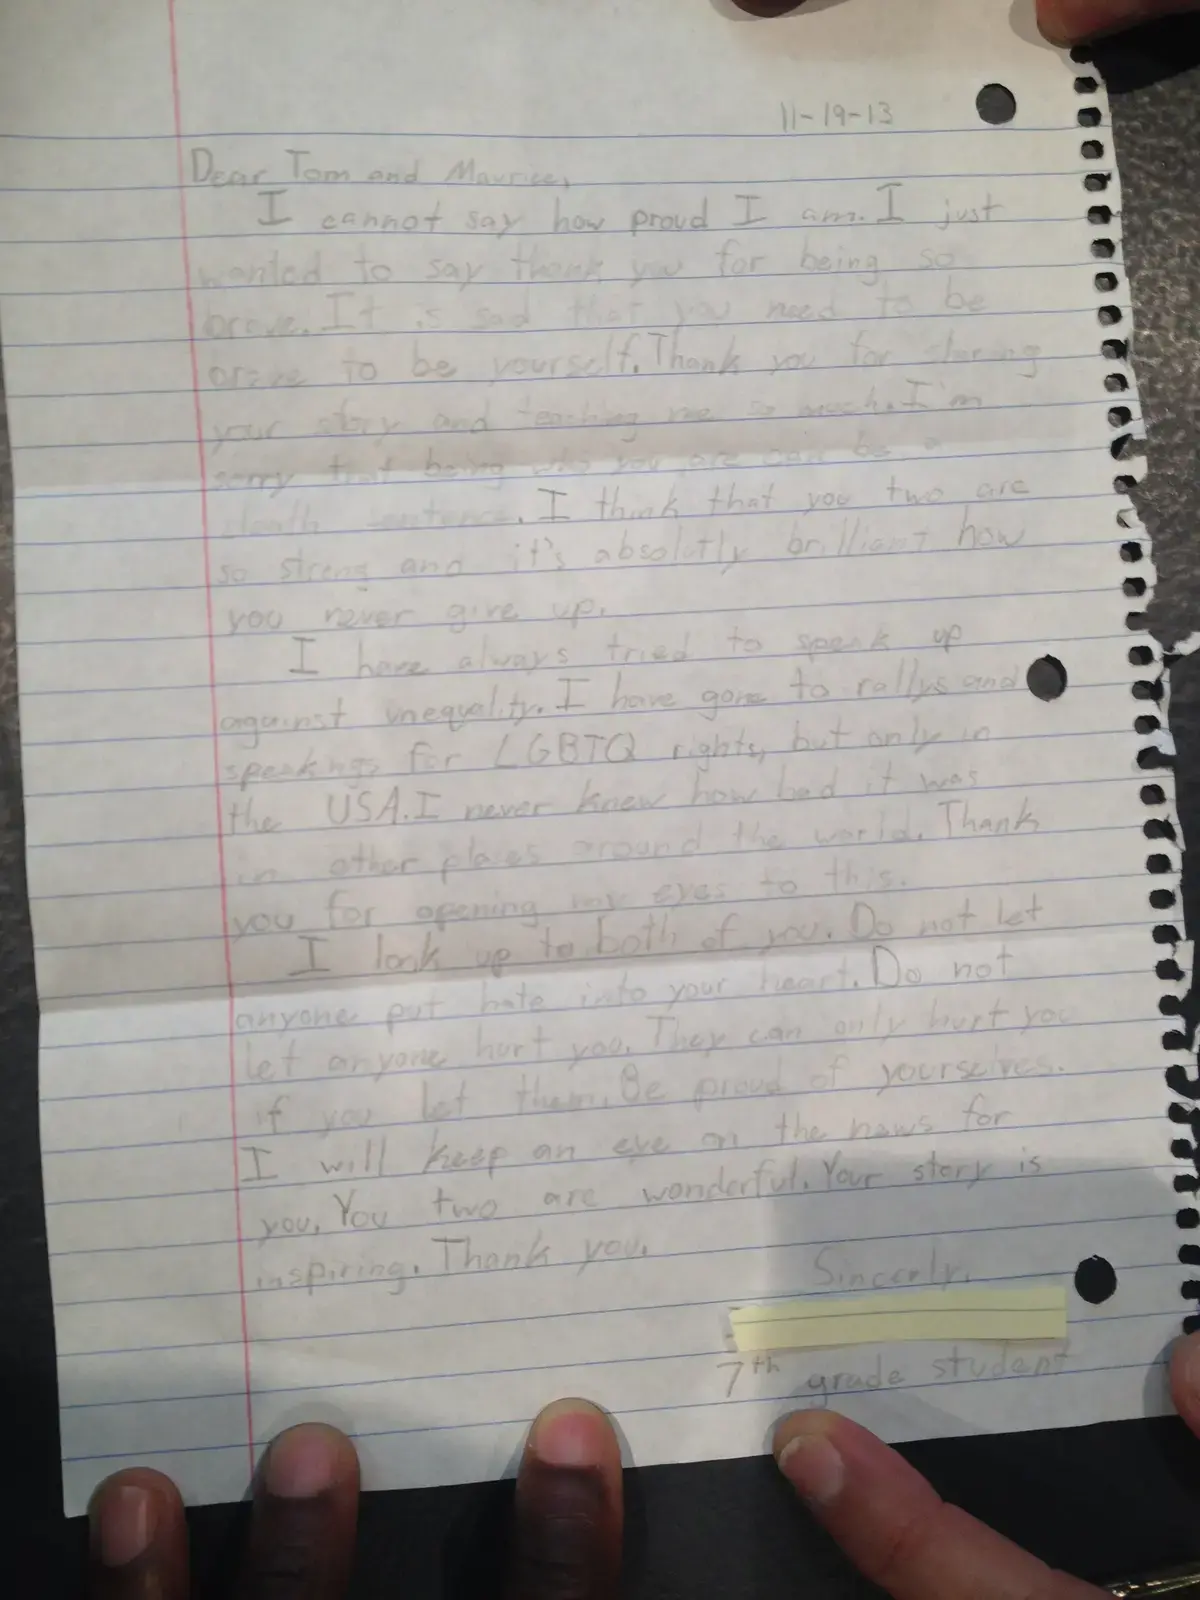 11-19-13
Dear Tom and Maurice,
I cannot say how proud I am. I just
wanted to say thank you for being so
brave. It is sad that you need to be
brave to be yourself. Thank you for sharing
your story and teaching me so much. I'm
sorry that being who you are can be a
death sentence. I think that you two are
so strong and it's absolutly brilliant how
you never give up.
I have always tried to speak up
against inequality. I have gone to rallys and
speakings for LGBTQ rights, but only in
the USA. I never knew how bad it was
in other places around the world. Thank
you for opening my eyes to this.
I look up to both of you. Do not let
anyone put hate into your heart. Do not
let anyone hurt you. They can only hurt you
if you let them. Be proud of yourselves.
I will keep an eye on the news for
you. You two are wonderful. Your story is
inspiring. Thank you.
Sincerly,
7th grade student